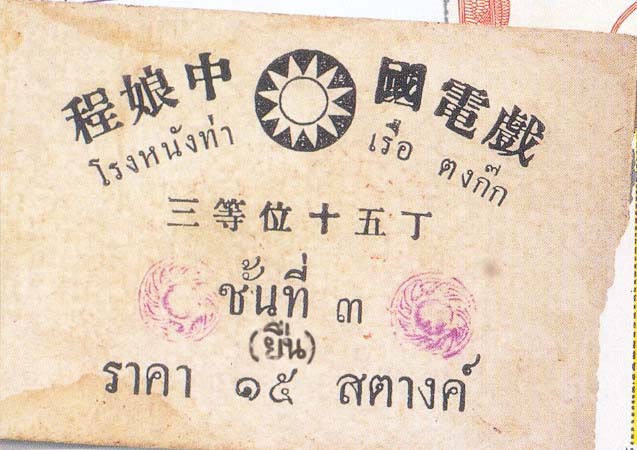 程娘中國電戲
โรงหนังท่าเรือ ตงก๊ก
三等位十五丁
ชั้นที่ ๓
(ยืน)
ราคา ๑๕ สตางค์